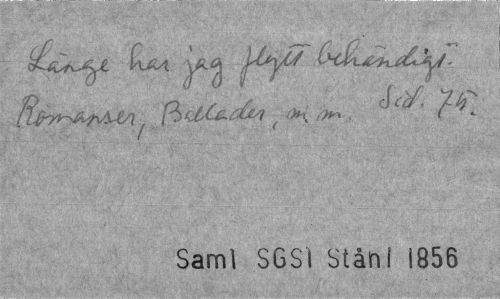 Länge har jag flytt behändigt.
Romanser, Ballader, m.m. Sid. 75.
Saml SGSl Ståhl 1856